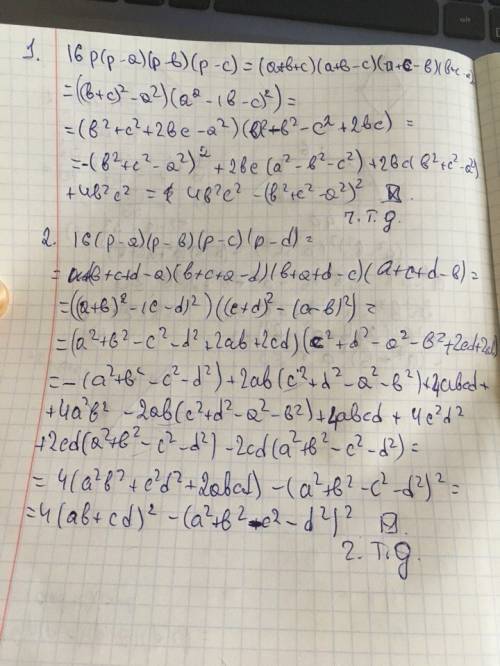 1. 16 p(p-a)(p-в)(p-c) = (a+в+c)(a+в-c)(a+c-в)(в+c-a)
=((в+c)²-a²)(a²-(в-c)²)=
=(в²+c²+2вc-a²)(a²-в²-c²+2вc) =
=-(в²+c²-a²)² + 2вc(a²-в²-c²) + 2вc(в²+c²-a²)
+4в²c² = 4в²c² -(в²+c²-a²)²
ч.т.д.
2. 16(p-a)(p-в)(p-c)(p-d)=
=(в+c+d-a)(в+c+a-d)(в+a+d-c)(a+c+d-в)=
=((a+в)²-(c-d)²)((c+d)²-(a-в)²)=
=(a²+в²-c²-d²+2ab+2cd)(c²+d²-a²-в²+2cd+2ab)
=-(a²+в²-c²-d²)+2ab(c²+d²-a²-в²)+4abcd+
+4a²в² -2ab(c²+d²-a²-в²)+4abcd+4c²d²
+2cd(a²+в²-c²-d²)-2cd(a²+в²-c²-d²)=
= 4(a²в²+c²d²+2abcd)-(a²+в²-c²-d²)²=
=4(ab+cd)² -(a²+в²-c²-d²)²
ч.т.д.